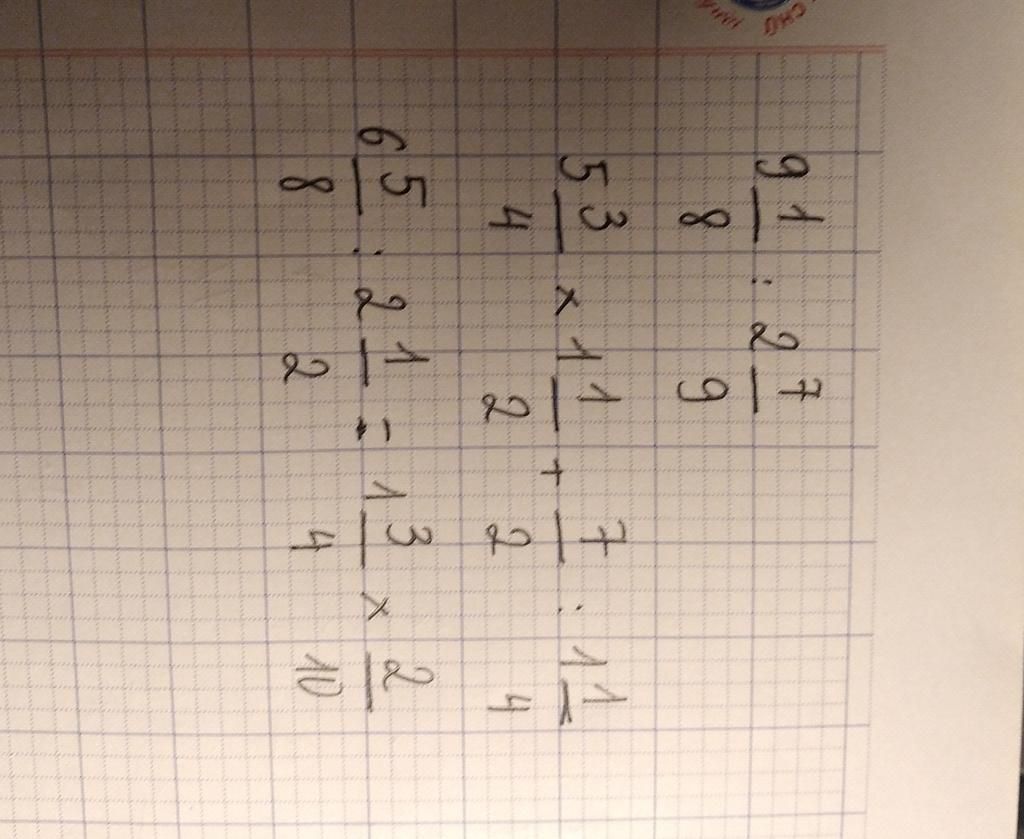 9 1/8 : 2 7/9
5 3/4 x 1 1/2 + 7/2 : 1 1/4
6 5/8 : 2 1/2 = 1 3/4 x 2/10